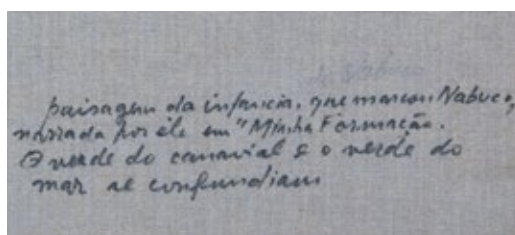 paisagem da infancia, que marcou Nabuco,
narrada por êle em "Minha Formação.
O verde do canavial e o verde do
mar se confundiam